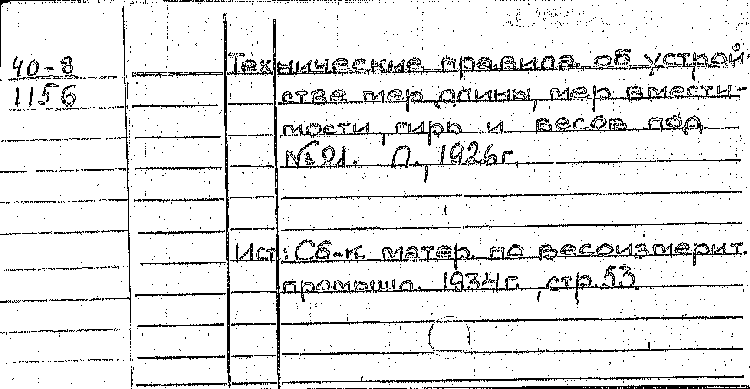 40-8
1156
Технические правила об устрой-
стве мер длины, мер вмести-
мости, гирь и весов под
№ 91. Л., 1926 г.
Ист: Сб-к матер. по весоизмерит.
промышл. 1934 г., стр. 53